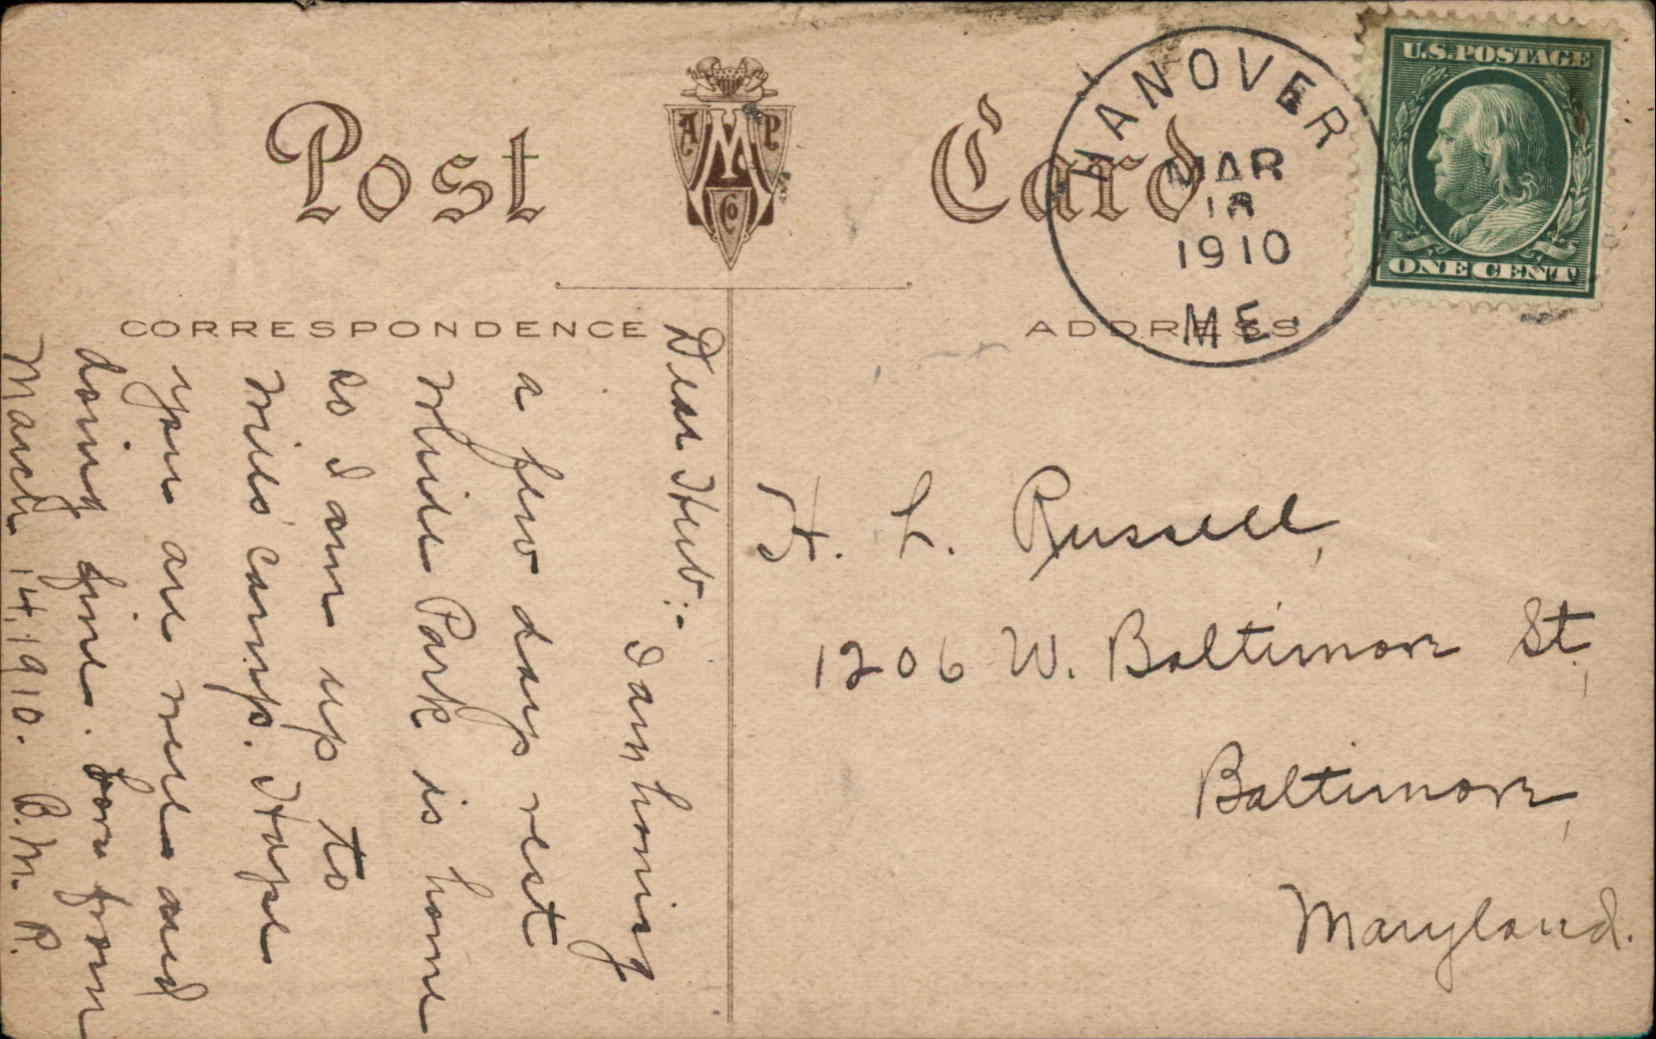 Post Card
A M P Co
HANOVER
MAR
18
1910
ME.
U.S. POSTAGE
ONE CENT
CORRESPONDENCE
ADDRESS
Dear Hub:-
I am having
a few days rest
while Park is home
so I am up to
Mills' camp. Hope
you are well and
doing fine. Love from
March 14, 1910. B. M. R.
H. L. Russell,
1206 W. Baltimore St.,
Baltimore,
Maryland.